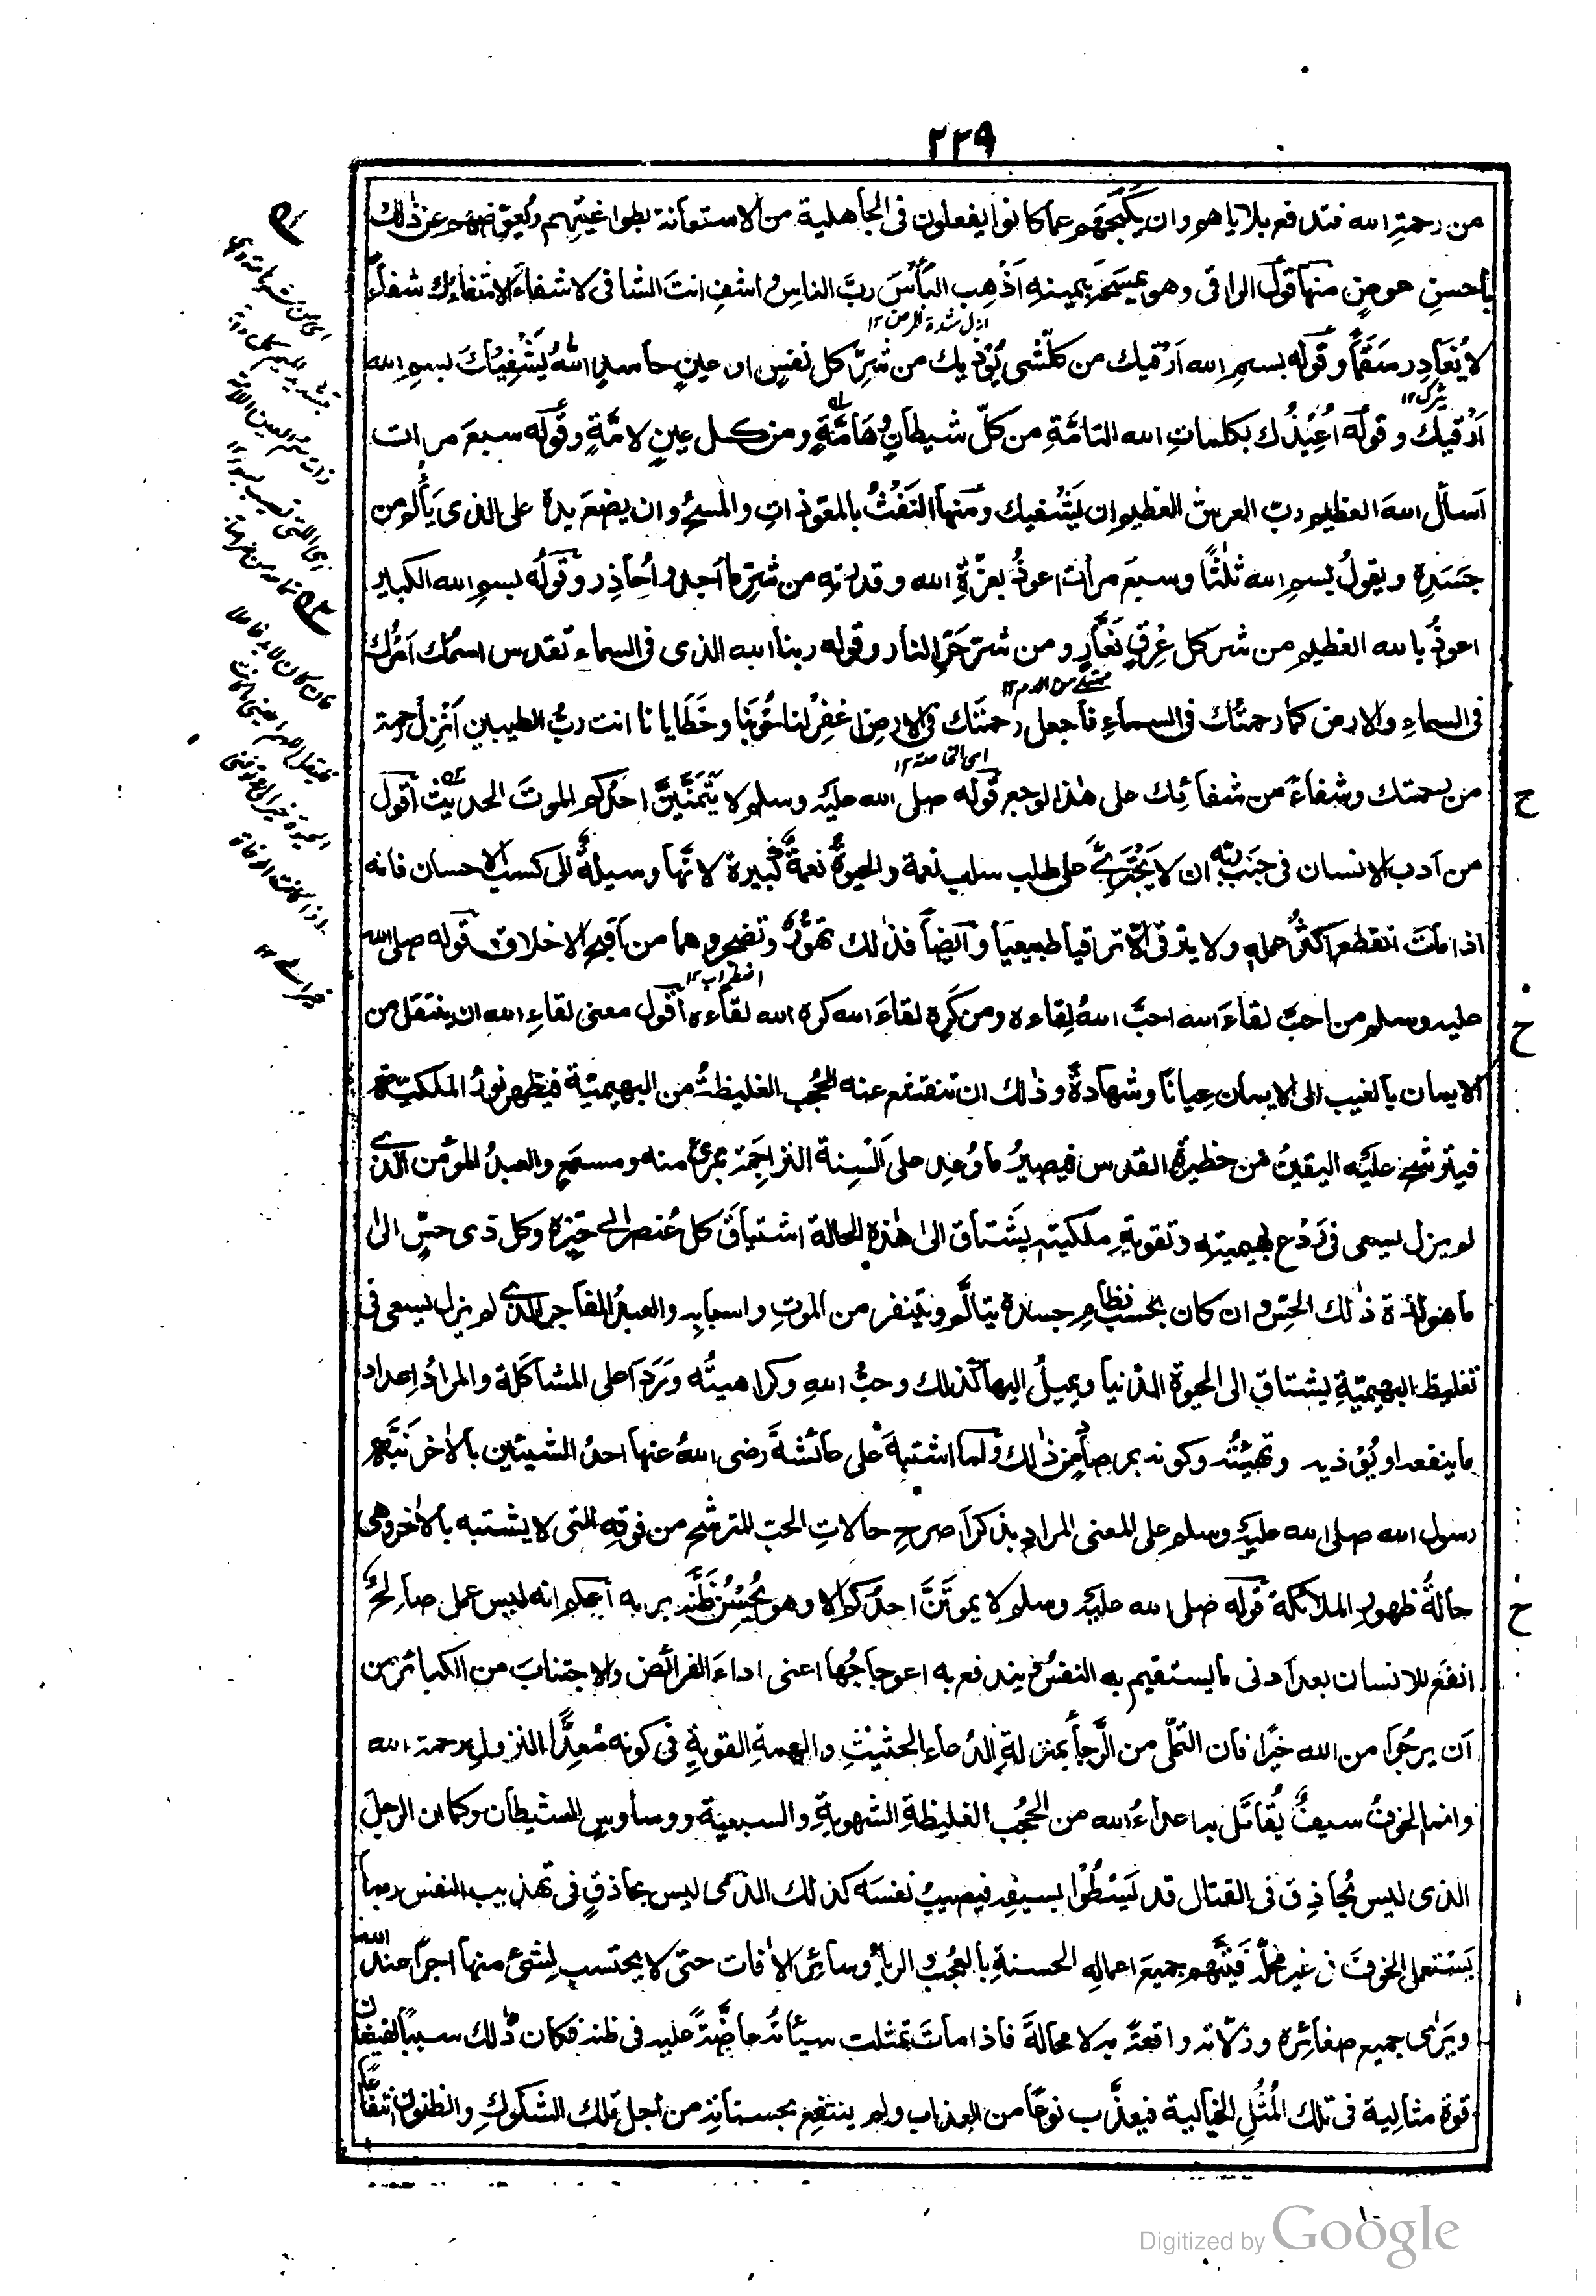 ٢٢٩
من رحمةِ الله فتدفع بلاياهم وان يكبحهم عما كانوا يفعلون فى الجاهلية من الاستعانة بطواغيتهم ويعوّضهم عن ذٰلك
باحسنِ عوضٍ منها قول الراقى وهو يمسحَه بيمينهِ اَذْهِب البَأْسَ ربَّ الناسِ واشفِ انتَ الشافى لا شفاءَ الا شفاءك شفاءً
ازل شدة المرض ١٢
لا يُغادِر سَقَماً وقوله بسمِ الله اَرْقيك من كلّ شى يُؤذيك من شرِّ كل نفسٍ او عينٍ حاسدٍ اللهُ يَشْفِيْكَ بسمِ الله
اَرْقيك وقوله اُعِيْذُك بكلماتِ الله التامَّةِ من كلّ شيطانٍ وهَامَّةٍ ومن كل عينٍ لامَّةٍ وقوله سبعَ مرات
اَسأل اللهَ العظيم ربّ العرش العظيم ان يَشْفيك ومنها النَفْثُ بالمعوّذاتِ والمسحُ وان يضعَ يده على الذى يَأْلم من
جَسَدِهٖ ويقولُ بسمِ الله ثلٰثًا وسبعَ مرات اعوذُ بعزّةِ الله وقدرتهِ من شرِّ ما اَجد واُحاذِر وقولُه بسمِ الله الكبير
اعوذُ بالله العظيم من شر كل عِرقٍ نَعَّارٍ ومن شرّ حَرّ النار وقوله ربنا الله الذى فى السماء تقدس اسمُك اَمْرُك
ممتلئ من الدم ١٢
فى السماءِ والارض كما رحمتُك فى السماءِ فاجعل رحمتَك فى الارضِ اغفِرْ لنا حُوبَنا وخَطَايانا انت ربُّ الطيبين اَنْزِل رحمة
من رحمتك وشفاءً من شفائك على هٰذا الوجع قوله صلى الله عليه وسلم لا يَتَمَنَّيَنَّ احدُكم الموتَ الحديث اقول
ح
من اَدب الانسان فى جَنْبِ ربّه ان لا يَجْتَرِئَ على طلب سلب نعمة والحيوةُ نعمةٌ كبيرة لانّها وسيلةٌ الى كسب الاحسان فانه
اذا ماتَ انقطع اكثرُ عملهِ ولا يترقى الّا ترقياً طبيعياً وايضاً فذٰلك تهوُّرٌ وتضجر وهما من اَقبح الاخلاق قوله صلى الله
اضطراب ١٢
عليه وسلم من احبَّ لقاءَ الله احبَّ اللهُ لِقاءه ومن كَرِه لقاءَ الله كره الله لقاءه اَقول معنى لقاءِ الله ان ينتقل من
ح
الايمان بالغيب الى الايمان عِياناً وشهادةً وذٰلك ان تنقشع عنه الحُجب الغليظةُ من البهيميّة فيظهر نورُ الملكيّة
فيترشح عليه اليقينُ من حظيرةِ القدس فيصيرُ ما وُعِد على اَلْسِنة التراجِمَة بمرىً منه ومسمعٍ والعبدُ المؤمن الّذى
لم يزل يسعى فى رَدْع بهيميتهِ وتقويةِ ملكيتهِ يشتاق الىٰ هٰذه الحالة اشتياقَ كل عُنصر الى حيّزه وكل ذى حسٍّ الىٰ
ما هو لذة ذٰلك الحسّ وان كان بحسب نظام جسده يتالّم ويتنفر من الموتِ واسبابِه والعبدُ الفاجر الذى لم يزل يسعى فى
تغليظ البهيميّةِ يشتاق الى الحيوة الدنيا ويميلُ اليها كذٰلك وحبُّ اللهِ وكراهيتُه وَرَدَا على المشاكَلة والمرادُ اِعداد
ما ينفعه او يُؤذيه وتهيئتُه وكونه بمرصادٍ من ذٰلك ولما اشتبهَ على عائشةَ رضى اللهُ عنها احدُ الشيئين بالاٰخر نَبَّهَ
رسول الله صلى الله عليه وسلم على المعنى المراد بذكر اَصرحِ حالاتِ الحبّ المترشحِ من فوقهِ التى لا يشتبه بالاٰخر وهى
حالةُ ظهورِ الملائكة قوله صلى الله عليه وسلم لا يموتَنَّ احدُكم الا وهو يُحْسِنُ ظَنَّه بربه اعلم انه ليس عمل صالحٌ
ح
انفعَ للانسان بعد اَدنى ما يستقيم به النفسُ ويندفع به اعوجاجُها اعنى اداءَ الفرائض والاجتنابَ من الكبائر من
اَن يرجُوَ من الله خيراً فان التملّى من الرَّجاء بمنزلةِ الدُعاءِ الحثيثِ والهمةِ القويةِ فى كونه مُعِدًّا لنزولِ رحمة الله
وانما الخوفُ سيفٌ يُقاتَل به اعداءُ الله من الحُجُب الغليظةِ الشهويةِ والسبعية ووساوسِ الشيطان وكما ان الرجلَ
الذى ليس بحاذِقٍ فى القتال قد يَسْطُوْا بسيفهِ فيصيبُ نفسَه كذلك الذى ليس بحاذقٍ فى تهذيب النفس ربما
يَسْتعمل الخوفَ فى غير محلّه فَيَتَّهم جميعَ اعمالِه الحسنةِ بالعُجب والرياء وسائر الاٰفات حتى لا يحتسب لِشىءٍ منها اجراً عند الله
ويَرٰى جميع صغائِره وزلّاته واقعةً به لا محالةَ فاذا ماتَ تمثلت سيئاتُه عاضَّةً عليه فى ظنه فكان ذٰلك سبباً لفيضان
قوة مثالية فى تلك المُثُلِ الخيالية فيعذَّب نوعاً من العذاب ولم ينتفع بحسناتهِ من اجل تلك الشكوكِ والظنون انتفاعًا
Digitized by Google